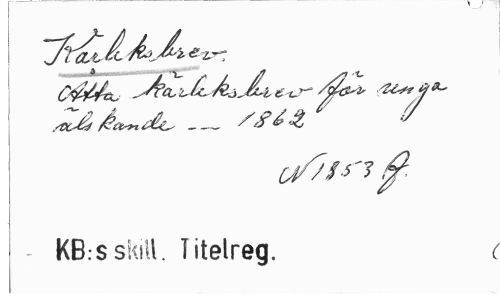 Kärleksbrev.
Åtta kärleksbrev för unga
älskande — 1862
N 1853 f.
KB:s skill. Titelreg.